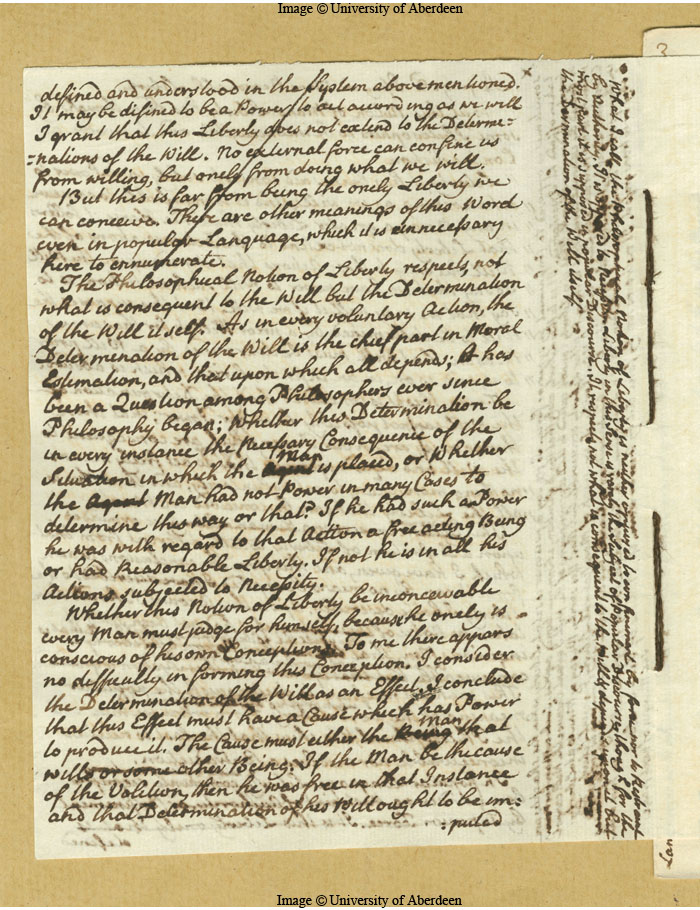 Image © University of Aberdeen
3
defined and understood in the System above mentioned.
It may be difined to be a Power to act according as we will
I grant that this Liberty does not extend to the Determe-
=nations of the Will. No external force can confine us
from willing, but onely from doing what we will.
But this is far from being the onely Liberty we
can conceive. There are other meanings of this Word
even in popular Language, which it is unnecessary
here to ennumerate.
The Philosophical Notion of Liberty respects, not
what is consequent to the Will but the Determination
of the Will itself. As in every voluntary Action, the
Determenation of the Will is the chief part in Moral
Estimation, and that upon which all depends; It has
been a Question among Philosophers ever since
Philosophy began; Whether this Determination be
in every instance the Necessary Consequence of the
Man
Situation in which the Agent is placed, or Whether
the Agent Man had not Power in many Cases to
determine this way or that? If he had such a Power
he was with regard to that Action a free acting Being
or had Reasonable Liberty. If not he is in all his
Actions subjected to Necessity.
Whether this Notion of Liberty be inconceivable
every Man must judge for himself, because he onely is
conscious of his own Conceptions. To me there appars
no difficulty in forming this Conception. I consider
the Determination of the Will as an Effect. I conclude
that this Effect must have a Cause which has Power
Man
to produce it. The Cause must either the Being that
wills or some other Being. If the Man be the cause
of the Volition, then he was free in that Instance
and that Determination of his Will ought to be im=
=puted
What I call the Philosophical Notion of Liberty is neither opposed to confinement by force nor to
by Authority
the Subject of Popular Discourse, tho
popular Discourse. It respects not what is consequent to the Will
the Determination of the Will itself.
Image © University of Aberdeen